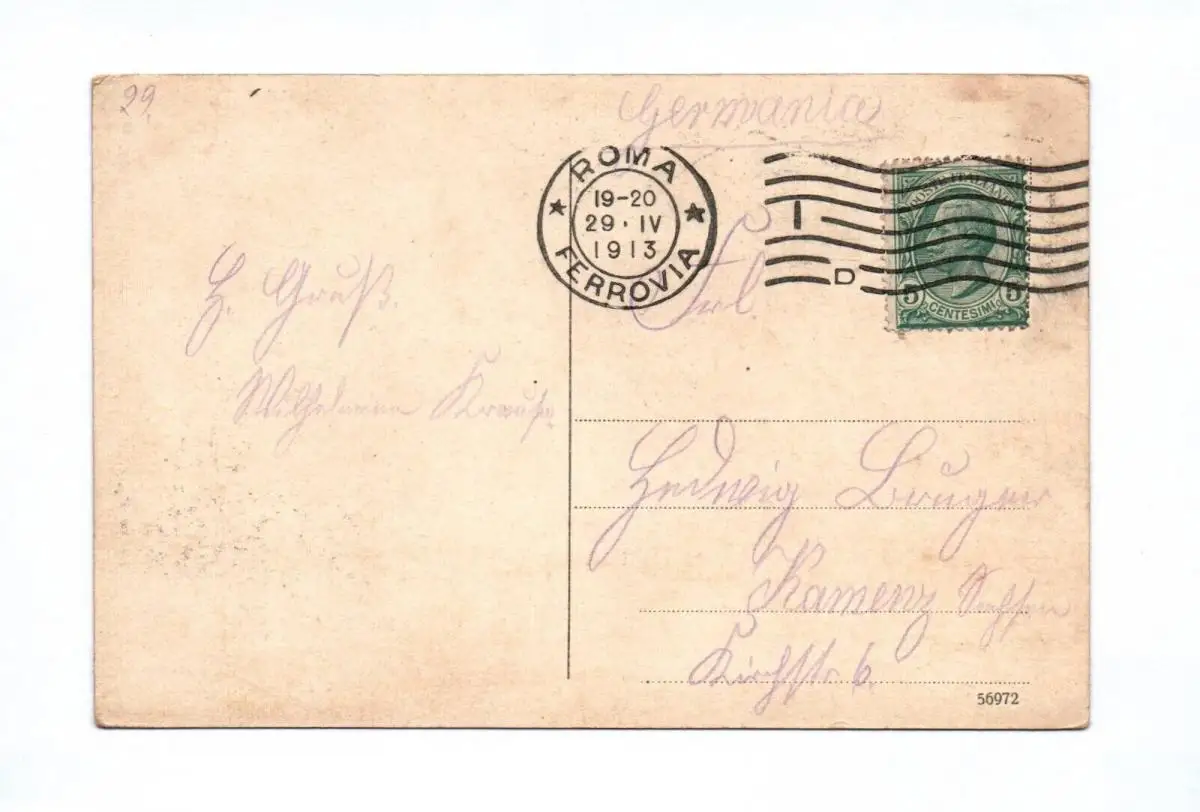 29.
Germania
ROMA
19-20
29·IV
1913
FERROVIA
I
D
POSTE ITALIANE
5 CENTESIMI 5
H. Gruß.
Wilhelmine Krause
Frl.
Hedwig
Kamenz Sachsen
Kirchstr 6.
56972